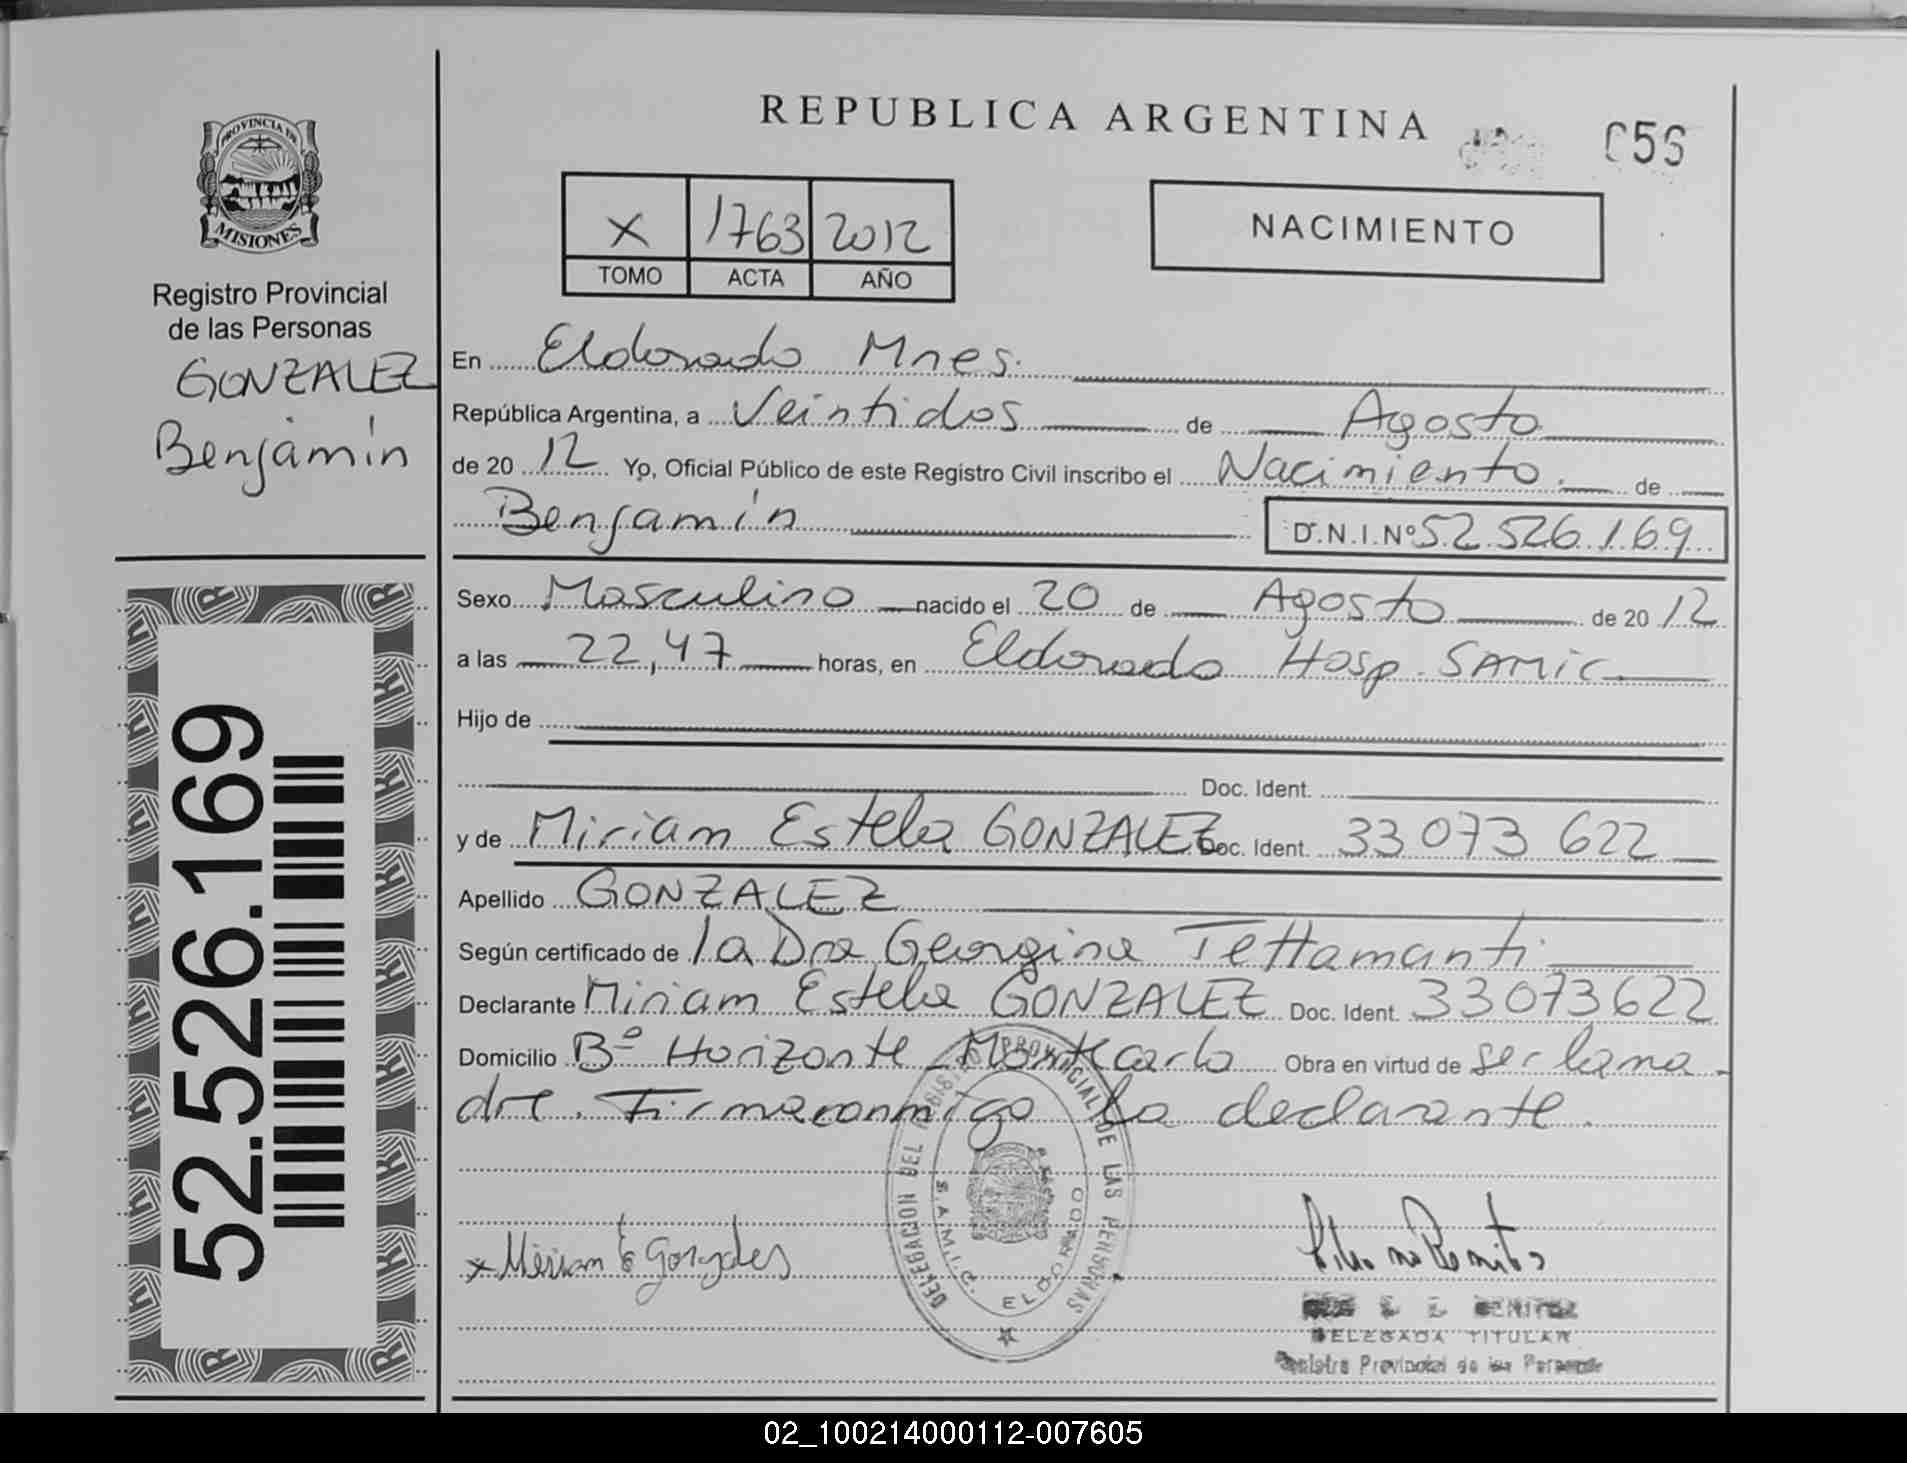 REPUBLICA ARGENTINA
056
PROVINCIA DE
MISIONES
Registro Provincial
de las Personas
GONZALEZ
Benjamín
X 1763 2012
TOMO ACTA AÑO
NACIMIENTO
En Eldorado Mnes.
República Argentina, a Veintidos de Agosto
de 20 12 Yo, Oficial Público de este Registro Civil inscribo el Nacimiento de
Benjamín D.N.I.Nº 52.526.169
Sexo Masculino nacido el 20 de Agosto de 20 12
a las 22,47 horas, en Eldorado Hosp. SAMIC
Hijo de
Doc. Ident.
y de Miriam Estela GONZALEZ Doc. Ident. 33 073 622
Apellido GONZALEZ
Según certificado de la Dra Georgina Tettamanti
Declarante Miriam Estela GONZALEZ Doc. Ident. 33 073 622
Domicilio Bº Horizonte - Montecarlo Obra en virtud de ser la ma-
dre. Firma conmigo la declarante.
52.526.169
DELEGACION DEL REGISTRO PROVINCIAL DE LAS PERSONAS
S.A.M.I.C. ELDORADO
x Miriam E Gonzales
BENITEZ
DELEGADA TITULAR
Registro Provincial de las Personas
02_100214000112-007605